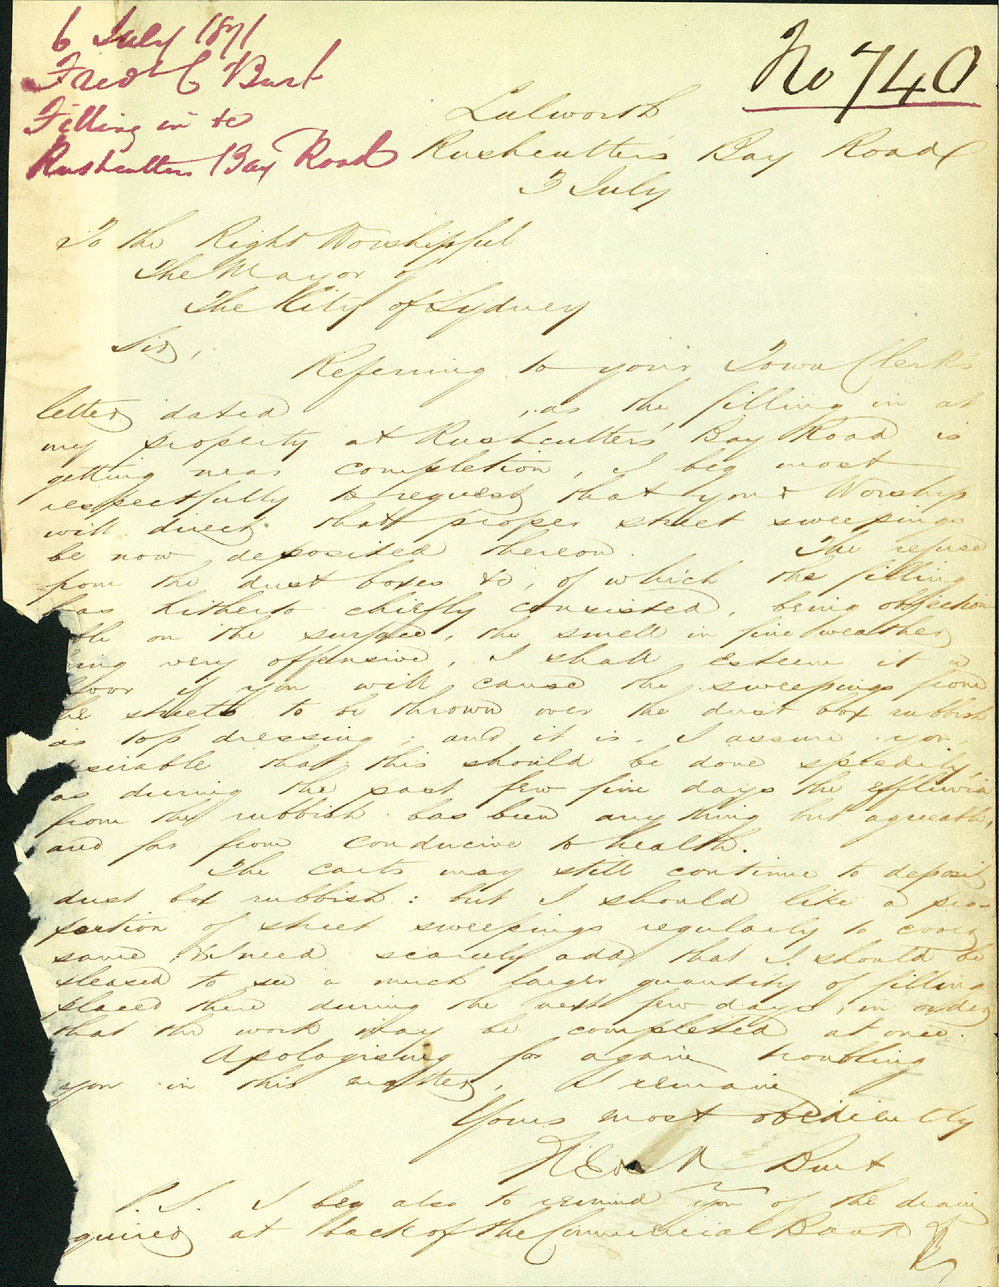 6 July 1871
Fredk C Burt
Filling in &c
Rushcutters Bay Road
No 740
Lulworth
Rushcutters Bay Road
3 July
To the Right Worshipful
The Mayor of
The City of Sydney
Sir,
Referring to your Town Clerk's
letter dated , as the filling in at
my property at Rushcutters' Bay Road is
getting near completion, I beg most
respectfully to request that your Worship
will direct that proper street sweepings
be now deposited thereon. The refuse
from the dust boxes &c, of which the filling
has hitherto chiefly consisted, being objection
able on the surface, the smell in fine weather
being very offensive, I shall esteem it a
favor if you will cause the sweepings from
the streets to be thrown over the dust box rubbish
as top dressing; and it is, I assure you
desirable that this should be done speedily,
as during the past few fine days the effluvia
from the rubbish has been any thing but agreeable,
and far from conducive to health.
The carts may still continue to deposit
dust box rubbish: but I should like a pro-
portion of street sweepings regularly to cover
same. I need scarcely add that I should be
pleased to see a much larger quantity of filling
placed there during the next few days, in order
that the work may be completed at once.
Apologising for again troubling
you in this matter, I remain
Yours most obediently
Burt
P.S. I beg also to remind you of the drain
quired at back of the Commercial Bank